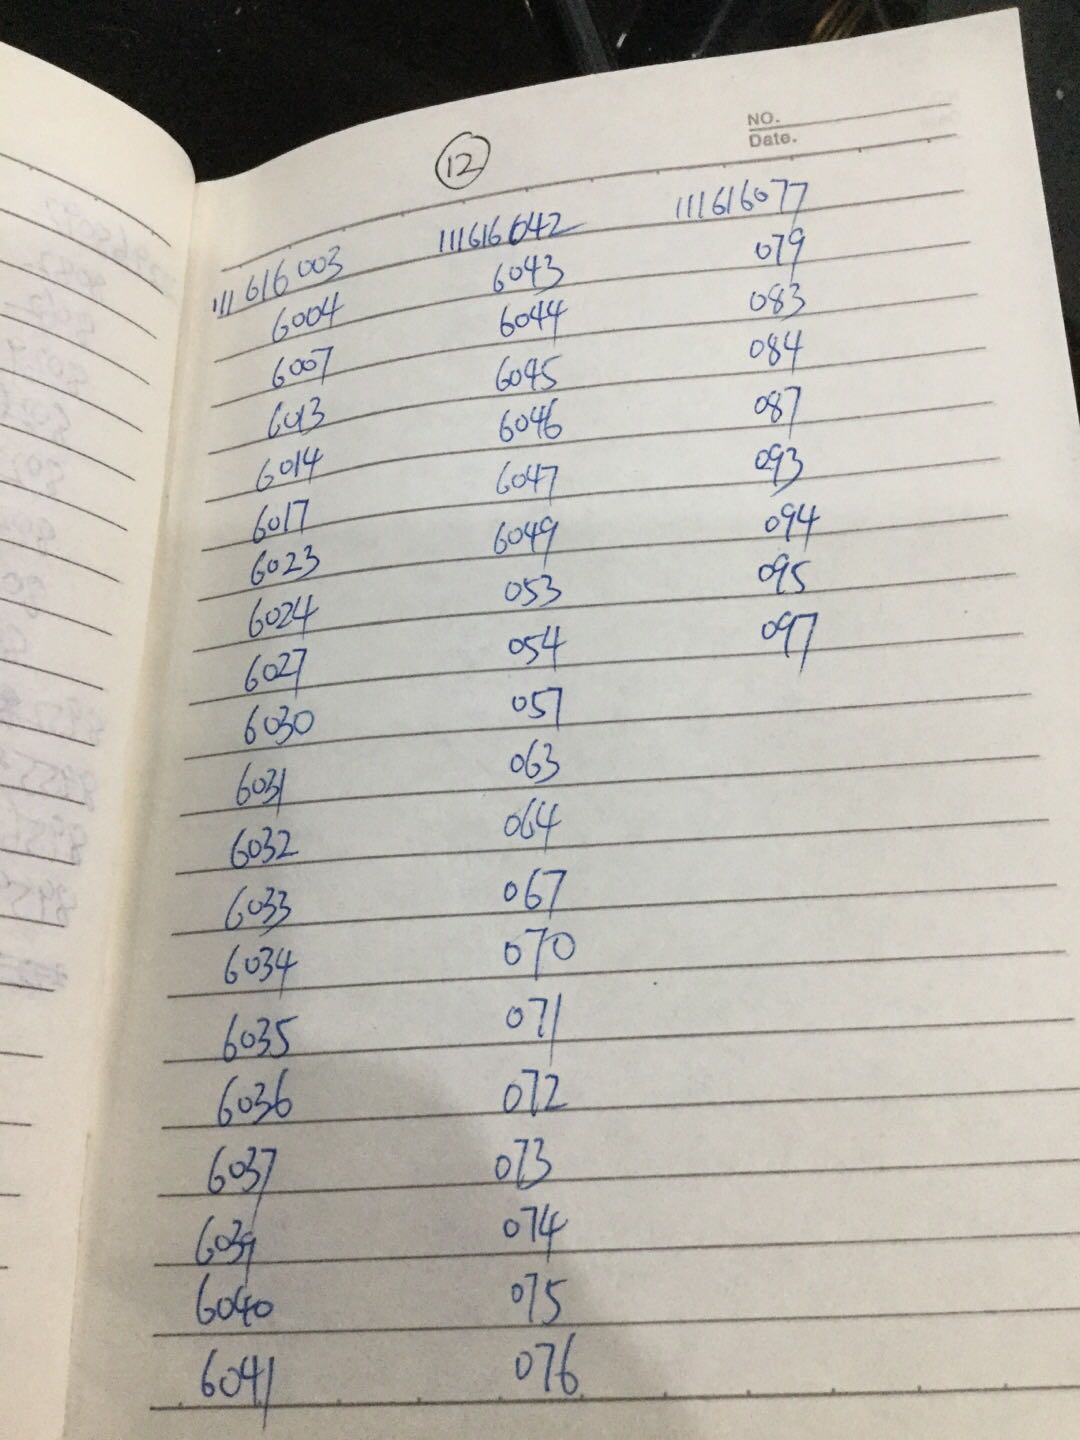 12
NO.
Date.
111616003
6004
6007
6013
6014
6017
6023
6024
6027
6030
6031
6032
6033
6034
6035
6036
6037
6039
6040
6041
111616042
6043
6044
6045
6046
6047
6049
053
054
057
063
064
067
070
071
072
073
074
075
076
111616077
079
083
084
087
093
094
095
097